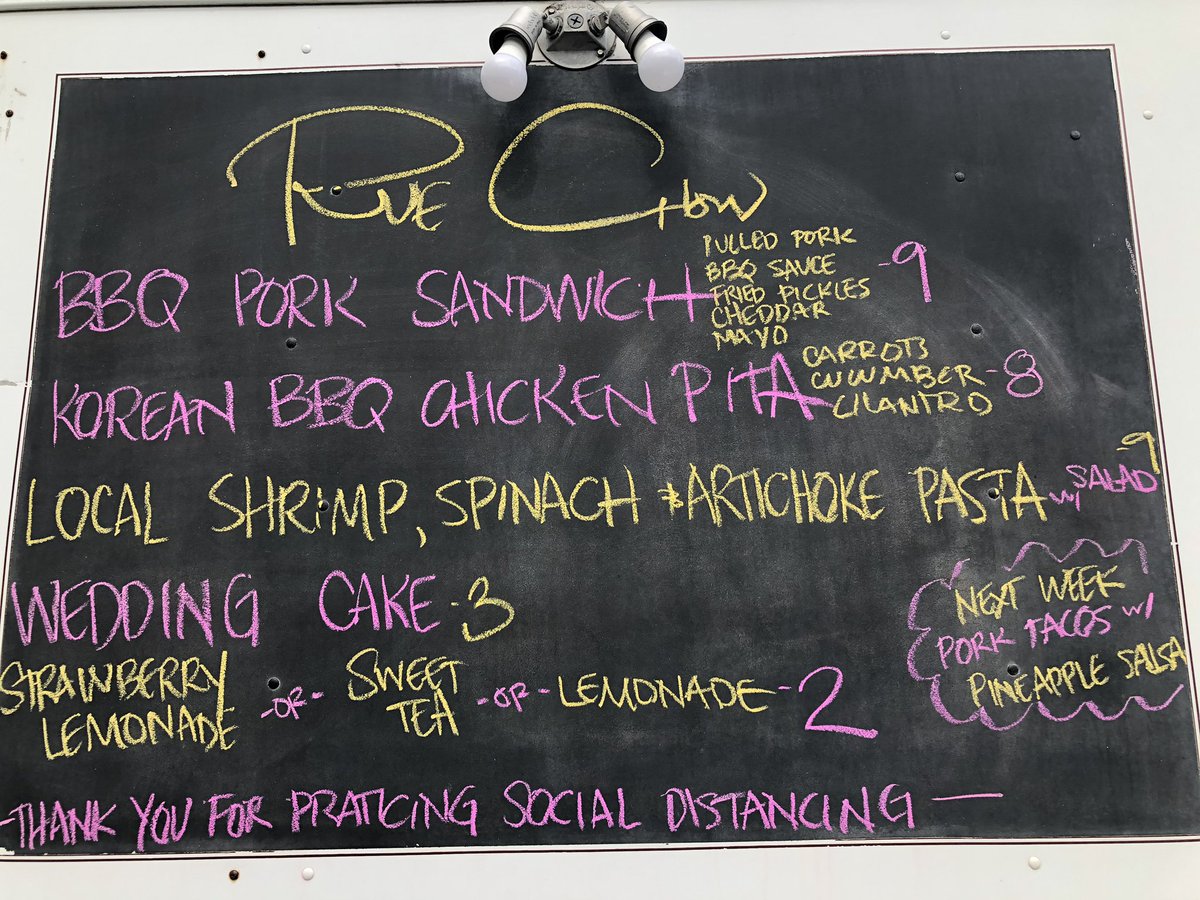 RUE CHOW
BBQ PORK SANDWICH
PULLED PORK
BBQ SAUCE
FRIED PICKLES
CHEDDAR
MAYO
-9
KOREAN BBQ CHICKEN PITA
CARROTS
CUCUMBER
CILANTRO
-8
LOCAL SHRIMP, SPINACH & ARTICHOKE PASTA w/ SALAD -9
WEDDING CAKE -3
STRAWBERRY
LEMONADE
-OR-
SWEET
TEA
-OR- LEMONADE -2
NEXT WEEK
PORK TACOS w/
PINEAPPLE SALSA
-THANK YOU FOR PRATICING SOCIAL DISTANCING -